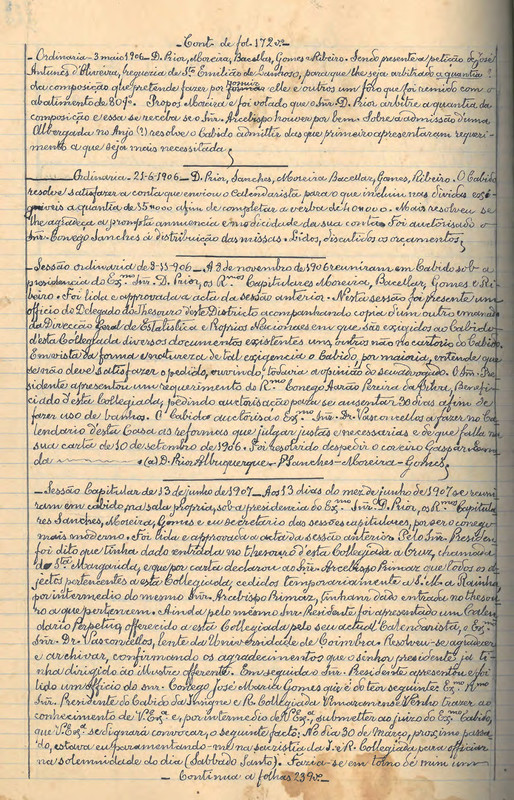 — Cont. de fol. 172 vº —
— Ordinaria — 3 maio 1906 — D. Prior, Moreira, Bacellar, Gomes e Ribeiro. Sendo presente a petição de José
Antunes d'Oliveira, freguezia de Stª Emilião de Lanhoso, para que lhe seja arbitrado a quantia
da composição que pretende fazer por elle e outros um foro que foi remido com o
abatimento de 80%. Propoz Moreira e foi votado que o Snr. D. Prior arbitre a quantia da
composição e essa se receba se o Snr. Arcebispo houver por bem. Sobre a admissão d'uma
Albergada no Anjo (?) resolve o Cabido admittir das que primeiro apresentaram requeri-
mento a que seja mais necessitada;
Ordinaria — 21-6-1906 — D. Prior, Sanches, Moreira Bacellar, Gomes, Ribeiro. O Cabido
resolve satisfazer a conta que enviou o Calendarista para o que incluiu nas dividas exi-
giveis a quantia de 35$000 afim de completar a verba de 40$000. Mais resolveu se
lhe agradeça a prompta annuencia e modicidade da sua conta. Foi auctorisado o
Snr. Conego Sanches á distribuição das missas. Lidos, discutidos os orçamentos;
— Sessão ordinaria de 3-11-906 — A 3 de novembro de 1906 reuniram em Cabido sob a
presidencia do Exmo. Snr. D. Prior, os Rmos Capitulares Moreira, Bacellar, Gomes e Ri-
beiro. Foi lida e approvada a acta da sessão anterior. Nesta sessão foi presente um
officio do Delegado do Thesouro deste Districto acompanhando copia d'um outro emanado
da Direcção Geral de Estatistica e Proprios Nacionaes em que são exigidos ao Cabido
desta Collegiada diversos documentos existentes uns, outros não no cartorio do Cabido.
Em vista da forma e natureza de tal exigencia o Cabido, por maioria, entende que
se não deve satisfazer o pedido, ouvindo, todavia a opinião do seu advogado. O Snr. Pre-
sidente apresentou um requerimento do Rmo Conego Aarão Pereira da Silva, Benefi-
ciado desta Collegiada, pedindo auctorisação para se ausentar 30 dias afim de
fazer uso de banhos. O Cabido auctorisa o Exmo. Snr. Dr. Vasconcellos a fazer no Ca-
lendario desta Casa as reformas que julgar justas e necessarias e de que falla na
sua carta de 10 de setembro de 1906. Foi resolvido despedir o coreiro Gaspar Roma-
da — (a) D. Prior Albuquerque — P. Sanches — Moreira — Gomes;
— Sessão Capitular de 13 de junho de 1907 — Aos 13 dias do mez de junho de 1907 se reuni-
ram em cabido, na sala propria, sob a presidencia do Exmo. Snr. D. Prior, os Rmos Capitula-
res Sanches, Moreira, Gomes e eu secretario das sessões capitulares, por ser o conego
mais moderno. Foi lida e approvada a acta da sessão anterior. Pelo Snr. Presidente
foi dito que tinha dado entrada no thesouro d'esta Collegiada a Cruz, chamada
de Stª Margarida, e que por carta declarou ao Snr. Arcebispo Primaz que todos os ob-
jectos pertencentes a esta Collegiada, cedidos temporariamente a S. M. a Rainha,
por intermedio do mesmo Snr. Arcebispo Primaz, tinham dado entrada no thesou-
ro a que pertencem. Ainda pelo mesmo Snr. Presidente foi apresentado um Calen-
dario Perpetuo, offerecido a esta Collegiada pelo seu actual Calendarista, o Exmo.
Snr. Dr. Vasconcellos, lente da Universidade de Coimbra. Resolveu-se agradecer
e archivar, confirmando os agradecimentos que o senhor presidente já ti-
nha dirigido ao illustre offerente. Em seguida o Snr. Presidente apresentou e foi
lido um officio do snr. Conego José Maria Gomes que é do teor seguinte: Exmo. e Rmo
Snr. Presidente do Cabido da Insigne e R. Collegiada Vimaranense. Venho trazer ao
conhecimento de V. Exª e, por intermedio de V. Exª, submetter ao juizo do Exmo. Cabido,
que V. Exª se dignará convocar, o seguinte facto: No dia 30 de Março, proximo passa-
do, estava eu paramentando-me na sacristia da I. e R. Collegiada para officiar
na solemnidade do dia (Sabbado Santo). Fazia-se em torno de mim um
— Continua a folhas 239 vº —